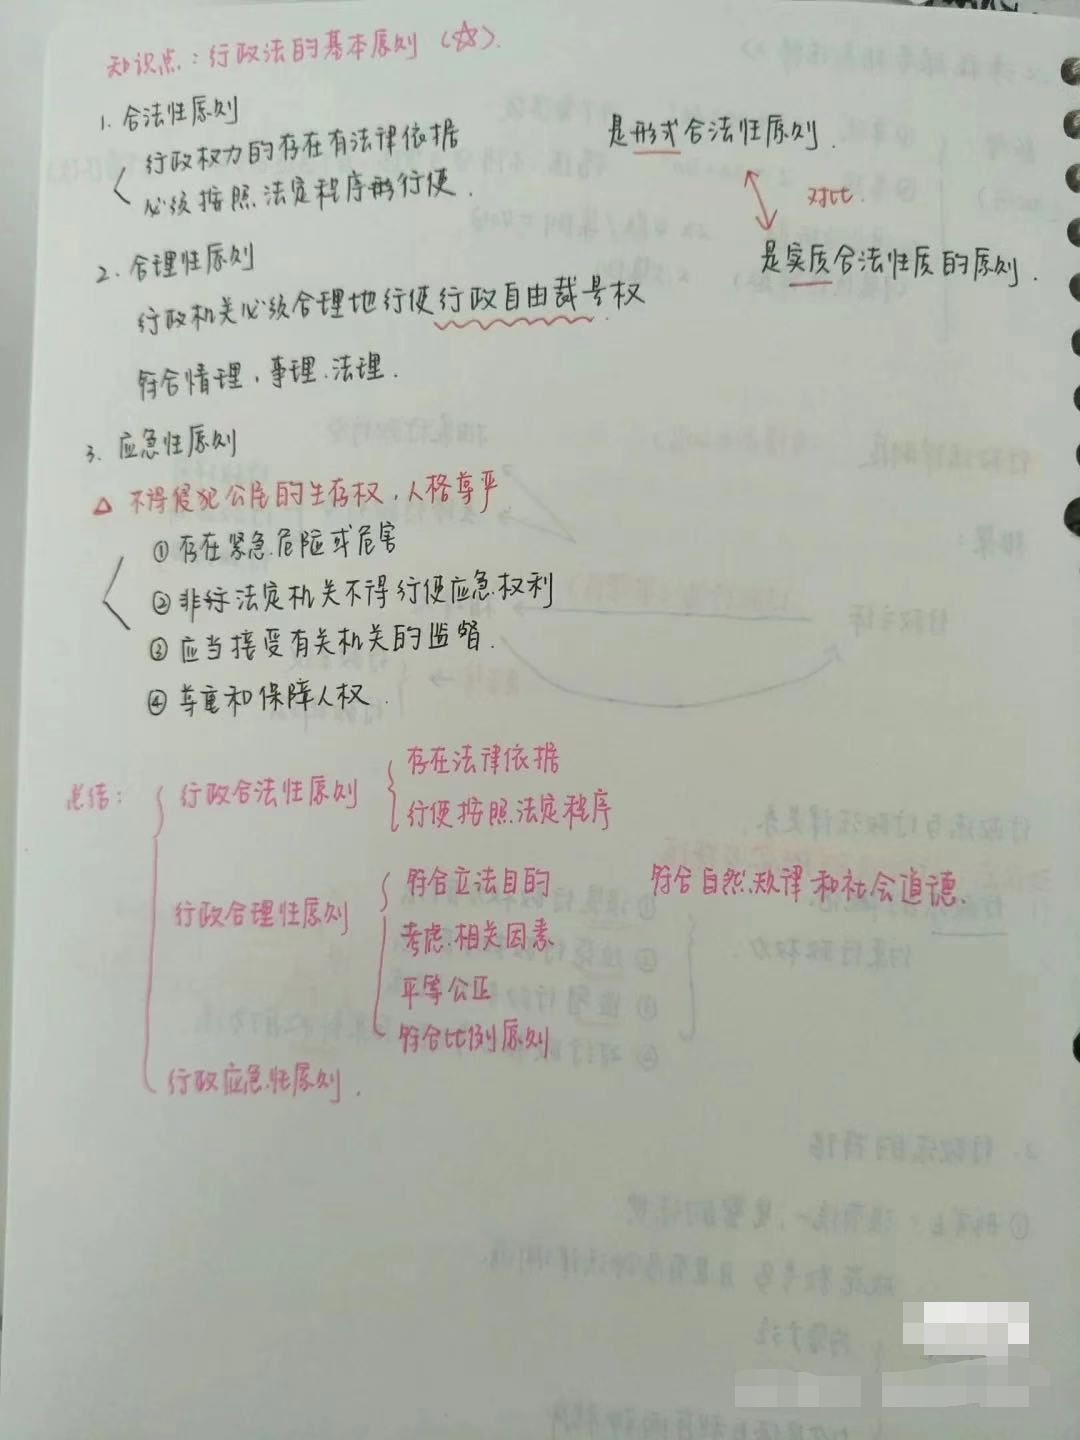 知识点：行政法的基本原则（☆）.
1. 合法性原则
行政权力的存在有法律依据
必须按照法定程序形行使.
是形式合法性原则.
对比.
是实质合法性质的原则.
2. 合理性原则
行政机关必须合理地行使行政自由裁量权
符合情理、事理、法理.
3. 应急性原则
△ 不得侵犯公民的生存权，人格尊严
① 存在紧急危险或危害
② 非行法定机关不得行使应急权利
③ 应当接受有关机关的监督.
④ 尊重和保障人权.
总结：
行政合法性原则
存在法律依据
行使按照法定程序
行政合理性原则
符合立法目的
符合自然规律和社会道德.
考虑相关因素
平等公正
符合比例原则
行政应急性原则.